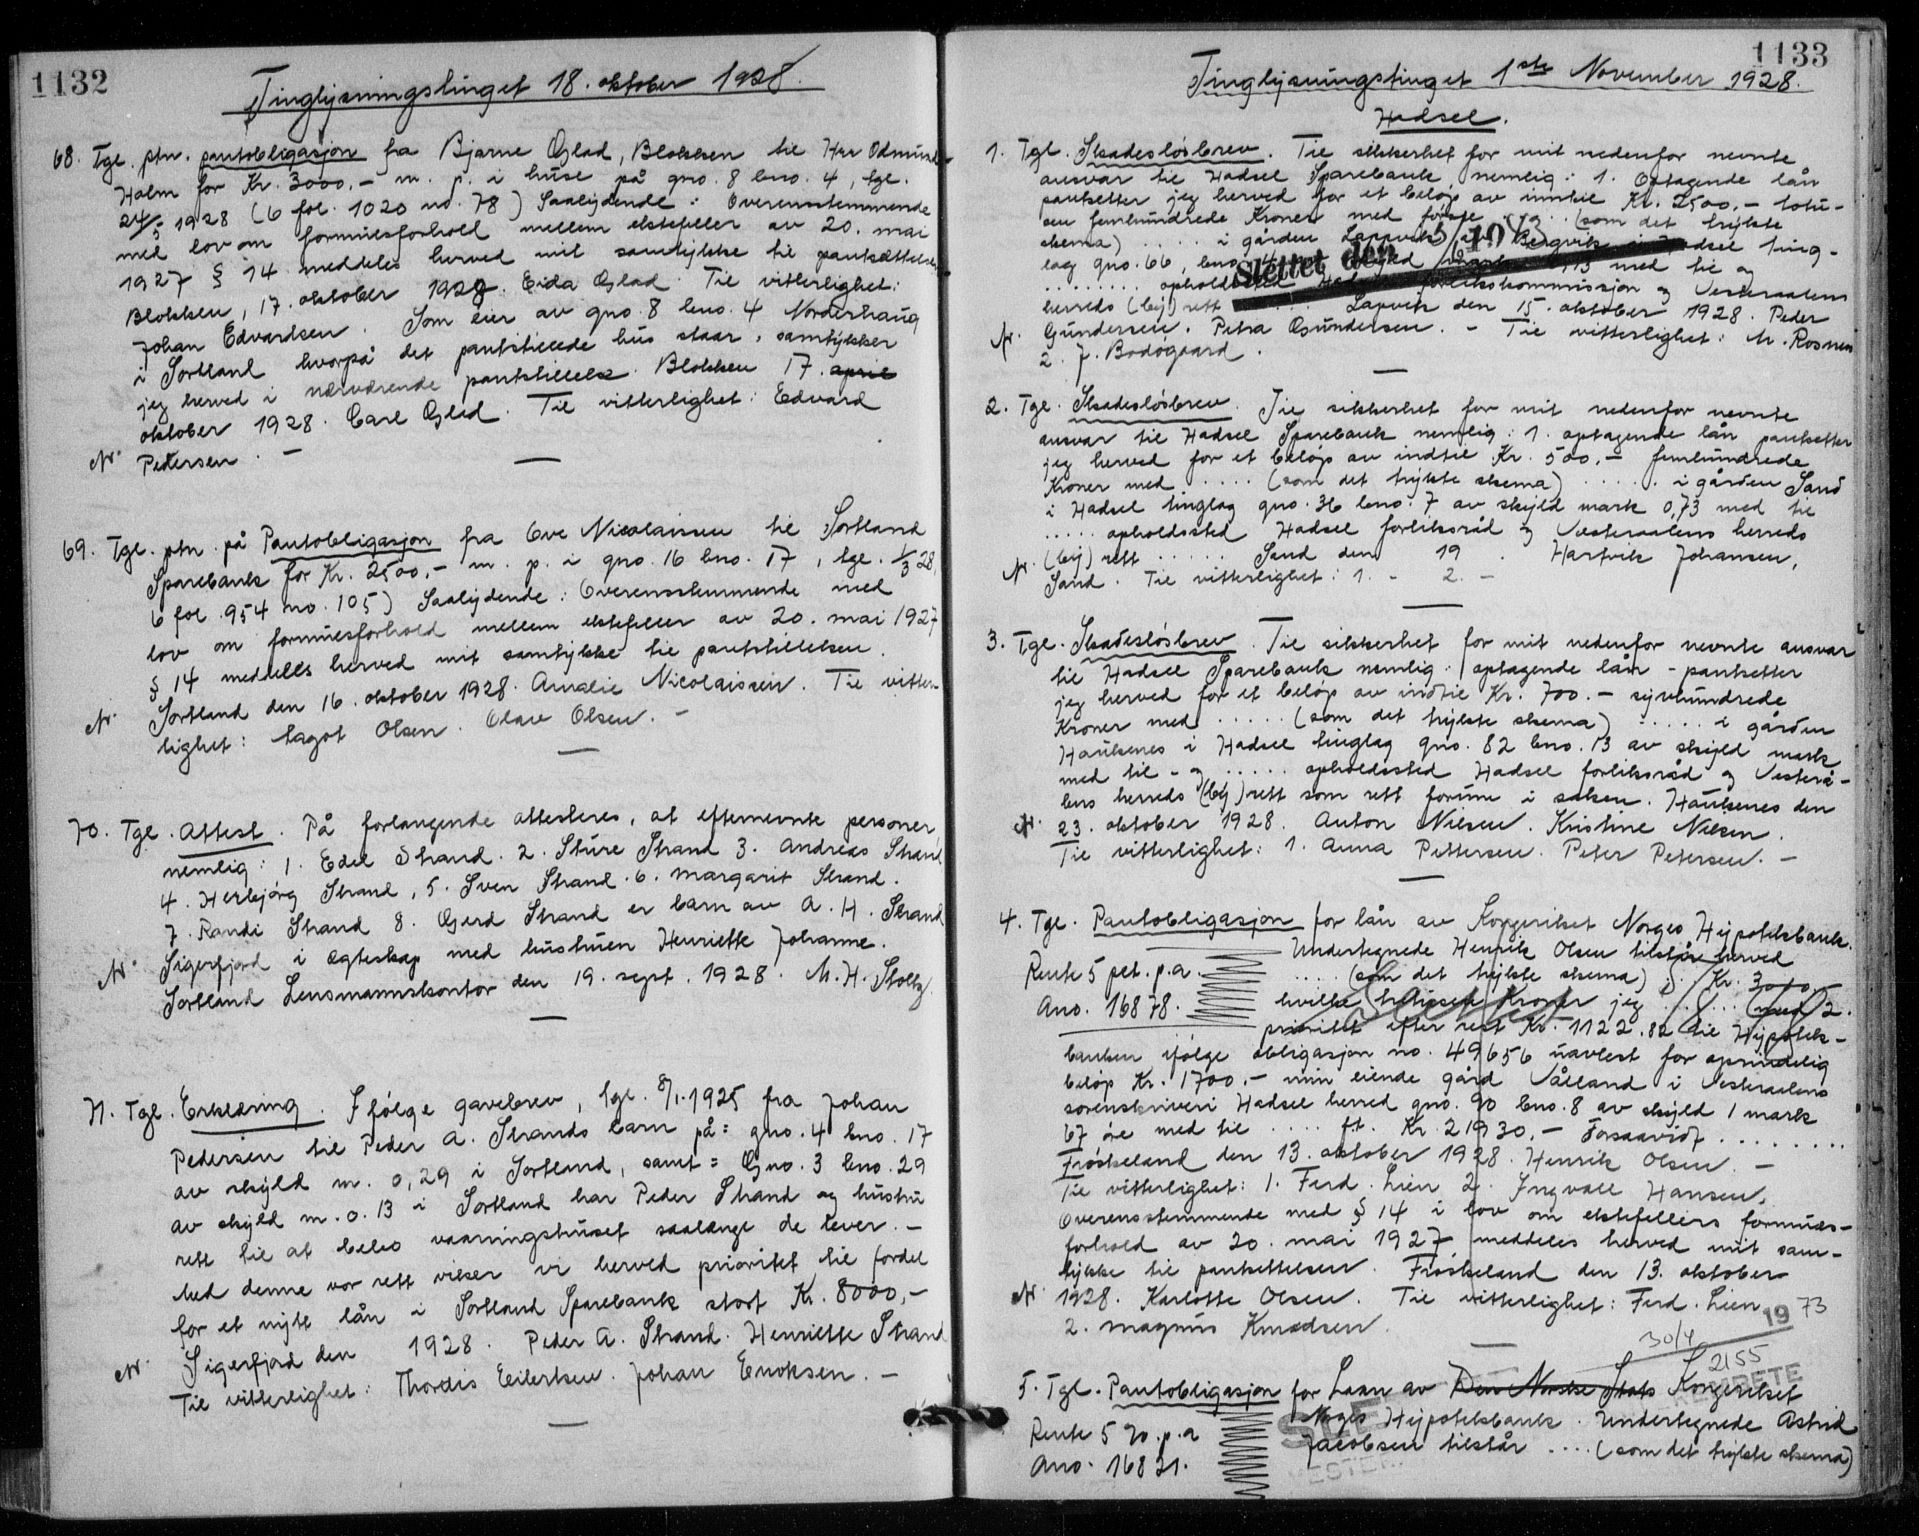 1132
Tinglysningstinget 18. oktober 1928.
68. Tgl. ptn. pantobligasjon fra Bjarne Glad, Blokken til Herr Odmund
Holm for Kr. 3000,- m. p. i huse på gno. 8 bno. 4, tgl.
24/5 1928 (6 fol. 1020 no. 78) Saalydende: Overensstemmende
med lov om formuesforhold mellem ektefeller av 20. mai
1927 § 14 meddeles herved mit samtykke til pantsættelsen
Blokken, 17. oktober 1928. Eida Glad. Til vitterlighet:
Johan Edvardsen. Som eier av gno. 8 bno. 4 Norderhaug
i Sortland hvorpå det pantstillede hus staar, samtykker
jeg herved i nærværende pantstillelse. Blokken 17. april
oktober 1928. Carl Glad. Til vitterlighet: Edvard
Petersen. -
69. Tgl. ptn. på Pantobligasjon fra Ove Nicolaissen til Sortland
Sparebank for Kr. 2500,- m. p. i gno. 16 bno. 17, tgl. 1/3 28,
6 fol. 954 no. 105) Saalydende: Overensstemmende med
lov om formuesforhold mellem ektefeller av 20. mai 1927
§ 14 meddeles herved mit samtykke til pantstillelsen.
Sortland den 16. oktober 1928. Amalie Nicolaissen. Til vitter-
lighet: Aagot Olsen. Olav Olsen. -
70. Tgl. Attest. På forlangende attesteres, at efternevnte personer
nemlig: 1. Edel Strand. 2. Sture Strand 3. Andreas Strand
4. Herbjörg Strand, 5. Sven Strand. 6. Margarit Strand.
7. Randi Strand 8. Gerd Strand er barn av A. H. Strand
Sigerfjord i ægteskap med hustruen Henriette Johanne.
Sortland Lensmannskontor den 19. sept. 1928. M. H. Stoltz.
71. Tgl. Erklæring. Ifölge gavebrev, tgl. 8/1. 1925 fra Johan
Pedersen til Peder A. Strands barn på: gno. 4 bno. 17
av skyld m. 0,29 i Sortland, samt: Gno. 3 bno. 29
av skyld m. 0.13 i Sortland har Peder Strand og hustru
rett til at bebo vaaningshuset saalænge de lever. -
Med denne vor rett viker vi herved prioritet til fordel
for et nytt lån i Sortland Sparebank stort Kr. 8000,-
Sigerfjord den 1928. Peder A. Strand. Henriette Strand
Til vitterlighet: Thordis Eilertsen. Johan Enoksen. -
1133
Tinglysningstinget 1ste November 1928.
Hadsel.
1. Tgl. Skadeslösbrev. Til sikkerhet for mit nedenfor nevnte
ansvar til Hadsel Sparebank nemlig: 1. Optagende lån
pantsetter jeg herved for et belöp av inntil Kr. 2500,- totu-
sen femhundrede Kroner med förste ... (som det trykte
skema) ..... i gården Lapvik Bergvik i Hadsel ting-
lag gno. 66, bno. 4 0,13 med til og
........ opholdssted Hadsel forlikskommissjon og Vesteraalens
herreds (by) rett Lapvik den 15. oktober 1928. Peder
Gundersen. Petra Gundersen. - Til vitterlighet: M. Rosnes
2. J. Bodögaard.
Slettet den
2. Tgl. Skadeslösbrev. Til sikkerhet for mit nedenfor nevnte
ansvar til Hadsel Sparebank nemlig: 1. optagende lån pantsetter
jeg herved for et belöp av indtil Kr. 500,- femhundrede
Kroner med .... (som det trykte skema) ..... i gården Sand
i Hadsel tinglag gno. 36 bno. 7 av skyld mark 0,73 med til
..... opholdssted Hadsel forliksråd og Vesteraalens herreds
(by) rett ..... Sand den 19 . Hartvik Johansen,
Sand. Til vitterlighet: 1. - 2. -
3. Tgl. Skadeslösbrev. Til sikkerhet for mit nedenfor nevnte ansvar
til Hadsel Sparebank nemlig: optagende lån - pantsetter
jeg herved for et belöp av indtil Kr. 700.- syvhundrede
Kroner med ..... (som det trykte skema) ..... i gården
Haukenes i Hadsel tinglag gno. 82 bno. 13 av skyld mark
med til - og ..... opholdssted Hadsel forliksråd og Vesterå-
lens herreds (by) rett som rett forum i saken. Haukenes den
23. oktober 1928. Anton Nilsen. Kristine Nilsen.
Til vitterlighet: 1. Anna Pettersen. Peter Petersen. -
4. Tgl. Pantobligasjon for lån av Kongeriket Norges Hypotekbank.
Undertegnede Henrik Olsen tilstår herved
Rente 5 pct. p.a. .... (som det trykte skema) Kr. 3000,-
Ano. 16878. hvilke tretusen Kroner jeg ..... (med 2.
Slettet
prioritet efter rest Kr. 1122.82 til Hypotek-
banken ifölge obligasjon no. 49656 uavlest for oprindelig
belöp Kr. 1700.- min eiende gård Vålland i Vesteraalens
sorenskriveri Hadsel herred gno. 90 bno. 8 av skyld 1 mark
67 öre med til .... ft. Kr. 21930,- Forsaavidt ........
Fröskeland den 13. oktober 1928. Henrik Olsen. -
Til vitterlighet: 1. Ferd. Lien 2. Ingvall Hansen,
Overensstemmende med § 14 i lov om ektefellers formues-
forhold av 20. mai 1927 meddeles herved mit sam-
tykke til pantsettelsen. Fröskeland den 13. oktober
1928. Karlotte Olsen. Til vitterlighet: Ferd. Lien
2. Magnus Knudsen.
30/4 1973
2155
5. Tgl. Pantobligasjon for Laan av Den Norske Stats Kongeriket
Rente 5 % p.a Norges Hypotekbank. Undertegnede Astrid
Ano. 16821. Jacobsen tilstår .... (som det trykte skema)